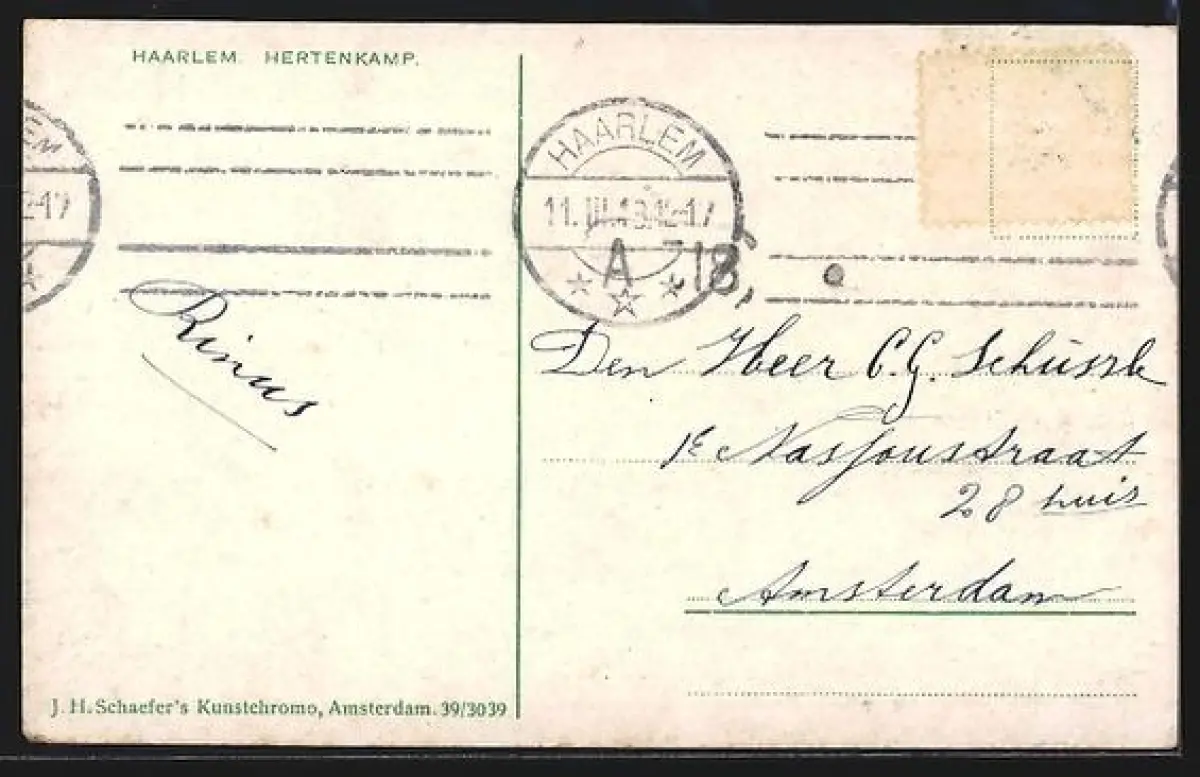 HAARLEM. HERTENKAMP.
EM
2-17
HAARLEM
11.III.13.12-17
A 18,
Rinus
Den Heer C.G. Schüssle
1E Nassaustraat
28 huis
Amsterdam
J. H. Schaefer's Kunstchromo, Amsterdam. 39/3039